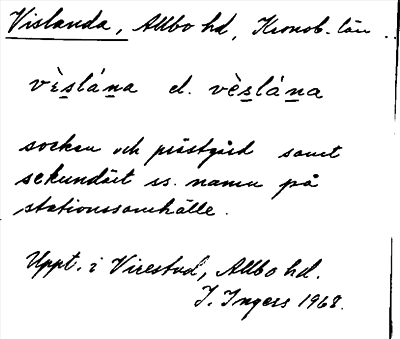 Vislanda, Allbo hd, Kronob. län
vìs̱láṉa el. vès̱láṉa
socken och prästgård samt
sekundärt ss. namn på
stationssamhälle.
Uppt. i Virestad, Allbo hd.
I. Ingers 1968.